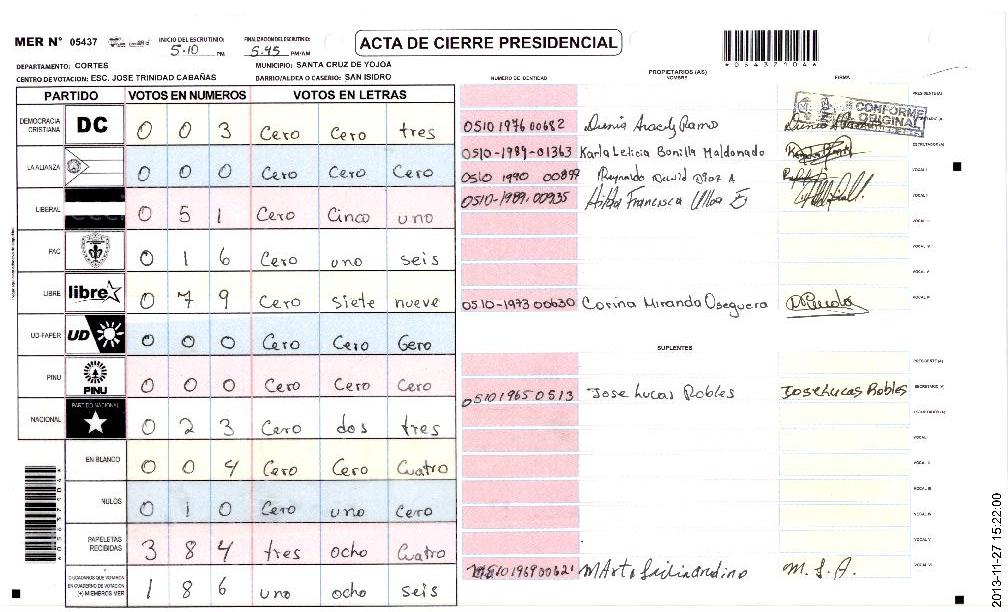 MER N° 05437 INICIO DEL ESCRUTINIO: 5:10 PM FINALIZACION DEL ESCRUTINIO: 5:45 PM/AM
ACTA DE CIERRE PRESIDENCIAL
*05437104*
DEPARTAMENTO: CORTES MUNICIPIO: SANTA CRUZ DE YOJOA
CENTRO DE VOTACION: ESC. JOSE TRINIDAD CABAÑAS BARRIO/ALDEA O CASERIO: SAN ISIDRO
NUMERO DE IDENTIDAD PROPIETARIOS (AS) NOMBRE FIRMA
PARTIDO VOTOS EN NUMEROS VOTOS EN LETRAS
PRESIDENTE(A)
CONFORME ORIGINAL
DEMOCRACIA CRISTIANA DC 0 0 3 Cero Cero tres
0510 1976 00682
LA ALIANZA 0 0 0 Cero Cero Cero
0510-1989-01363 Karla Leticia Bonilla Maldonado
0510 1990 Reynando David Diaz A VOCAL I
LIBERAL 0 5 1 Cero Cinco uno
0510-1989-00935 Hilda Francisca Ulloa E
PAC 0 1 6 Cero uno seis
LIBRE libre 0 7 9 Cero siete nueve
0510-1973 00630 Corina Miranda Oseguera
UD-FAPER UD 0 0 0 Cero Cero Cero
SUPLENTES
PRESIDENTE (A)
PINU PINU 0 0 0 Cero Cero Cero
0510 1965 0513 Jose Lucas Robles Jose Lucas Robles
NACIONAL PARTIDO NACIONAL 0 2 3 Cero dos tres
EN BLANCO 0 0 4 Cero Cero Cuatro
NULOS 0 1 0 Cero uno Cero
PAPELETAS RECIBIDAS 3 8 4 tres ocho Cuatro
CIUDADANOS QUE VOTARON EN CUADERNO DE VOTACION (+) MIEMBROS MER 1 8 6 uno ocho seis
M. S. A.
2013-11-27 15:22:00